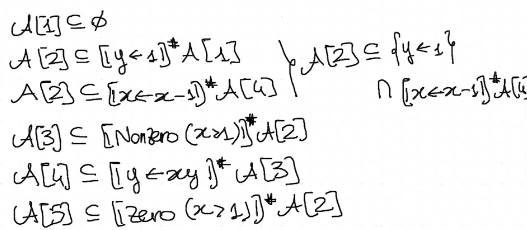 A[1] ⊆ ∅
A[2] ⊆ [[y←1]]# A[1]
A[2] ⊆ [[x←x-1]]# A[4] } A[2] ⊆ {y←1}
∩ [[x←x-1]]# A[4
A[3] ⊆ [[Nonzero(x>1)]]# A[2]
A[4] ⊆ [[y←xy]]# A[3]
A[5] ⊆ [[Zero(x>1)]]# A[2]